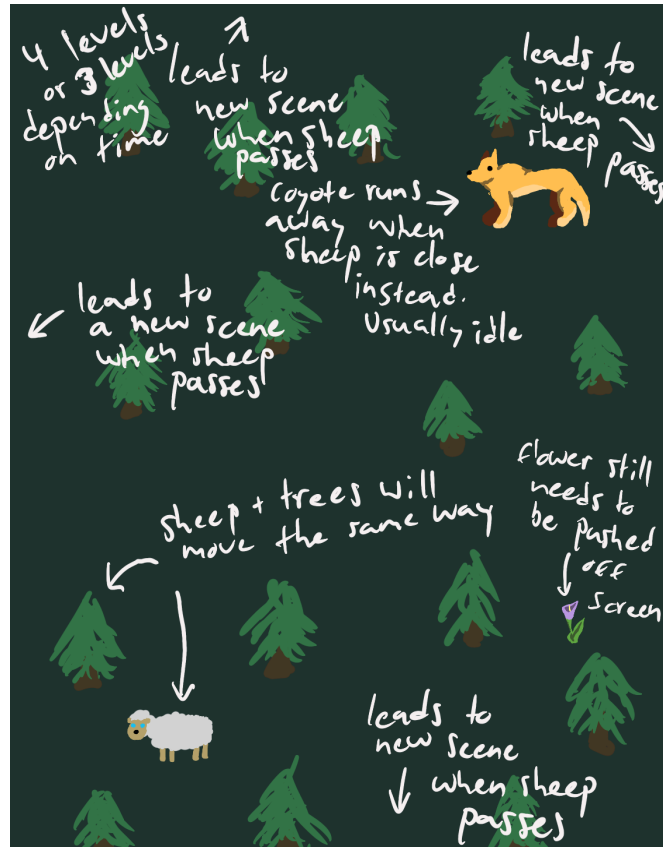 4 levels
or 3 levels
depending
on time
leads to
new scene
when sheep
passes
leads to
new scene
when
sheep passes
coyote runs
away when
sheep is close
instead.
Usually idle
leads to
a new scene
when sheep
passes
flower still
needs to
be pushed
off
screen
sheep + trees will
move the same way
leads to
new scene
when sheep
passes